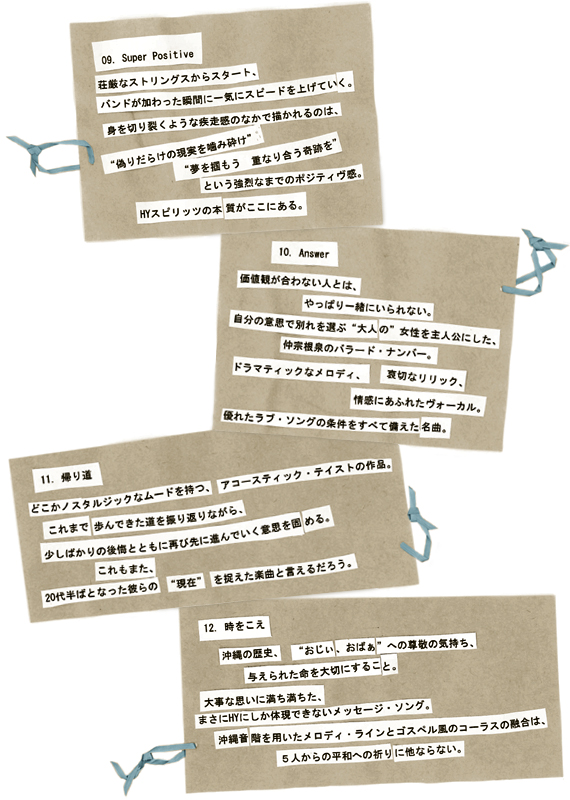 09. Super Positive
荘厳なストリングスからスタート、
バンドが加わった瞬間に一気にスピードを上げていく。
身を切り裂くような疾走感のなかで描かれるのは、
“偽りだらけの現実を噛み砕け”
“夢を掴もう 重なり合う奇跡を”
という強烈なまでのポジティヴ感。
HYスピリッツの本質がここにある。
10. Answer
価値観が合わない人とは、
やっぱり一緒にいられない。
自分の意思で別れを選ぶ“大人の”女性を主人公にした、
仲宗根泉のバラード・ナンバー。
ドラマティックなメロディ、 哀切なリリック、
情感にあふれたヴォーカル。
優れたラブ・ソングの条件をすべて備えた名曲。
11. 帰り道
どこかノスタルジックなムードを持つ、アコースティック・テイストの作品。
これまで歩んできた道を振り返りながら、
少しばかりの後悔とともに再び先に進んでいく意思を固める。
これもまた、
20代半ばとなった彼らの “現在” を捉えた楽曲と言えるだろう。
12. 時をこえ
沖縄の歴史、 “おじぃ、おばぁ”への尊敬の気持ち、
与えられた命を大切にすること。
大事な思いに満ち満ちた、
まさにHYにしか体現できないメッセージ・ソング。
沖縄音階を用いたメロディ・ラインとゴスペル風のコーラスの融合は、
5人からの平和への祈りに他ならない。